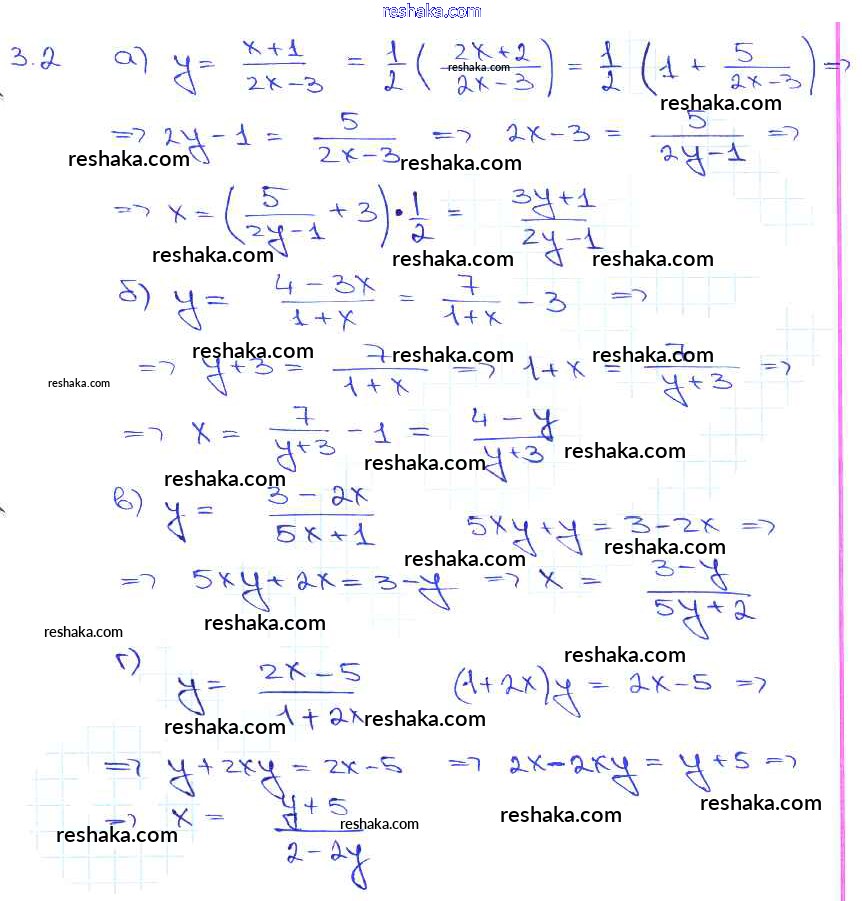 reshaka.com
3.2 а) y = (x+1)/(2x-3) = 1/2 ((2x+2)/(2x-3)) = 1/2 (1 + 5/(2x-3)) =>
reshaka.com
reshaka.com
=> 2y-1 = 5/(2x-3) => 2x-3 = 5/(2y-1) =>
reshaka.com reshaka.com
=> x = (5/(2y-1) + 3) · 1/2 = (3y+1)/(2y-1)
reshaka.com reshaka.com reshaka.com
б) y = (4-3x)/(1+x) = 7/(1+x) - 3 =>
reshaka.com reshaka.com reshaka.com
=> y+3 = 7/(1+x) => 1+x = 7/(y+3) =>
reshaka.com
=> x = 7/(y+3) - 1 = (4-y)/(y+3)
reshaka.com reshaka.com reshaka.com
в) y = (3-2x)/(5x+1) 5xy+y = 3-2x =>
reshaka.com reshaka.com
=> 5xy+2x = 3-y => x = (3-y)/(5y+2)
reshaka.com reshaka.com
reshaka.com
г) y = (2x-5)/(1+2x) (1+2x)y = 2x-5 =>
reshaka.com reshaka.com
=> y+2xy = 2x-5 => 2x-2xy = y+5 =>
reshaka.com
=> x = (y+5)/(2-2y)
reshaka.com reshaka.com reshaka.com